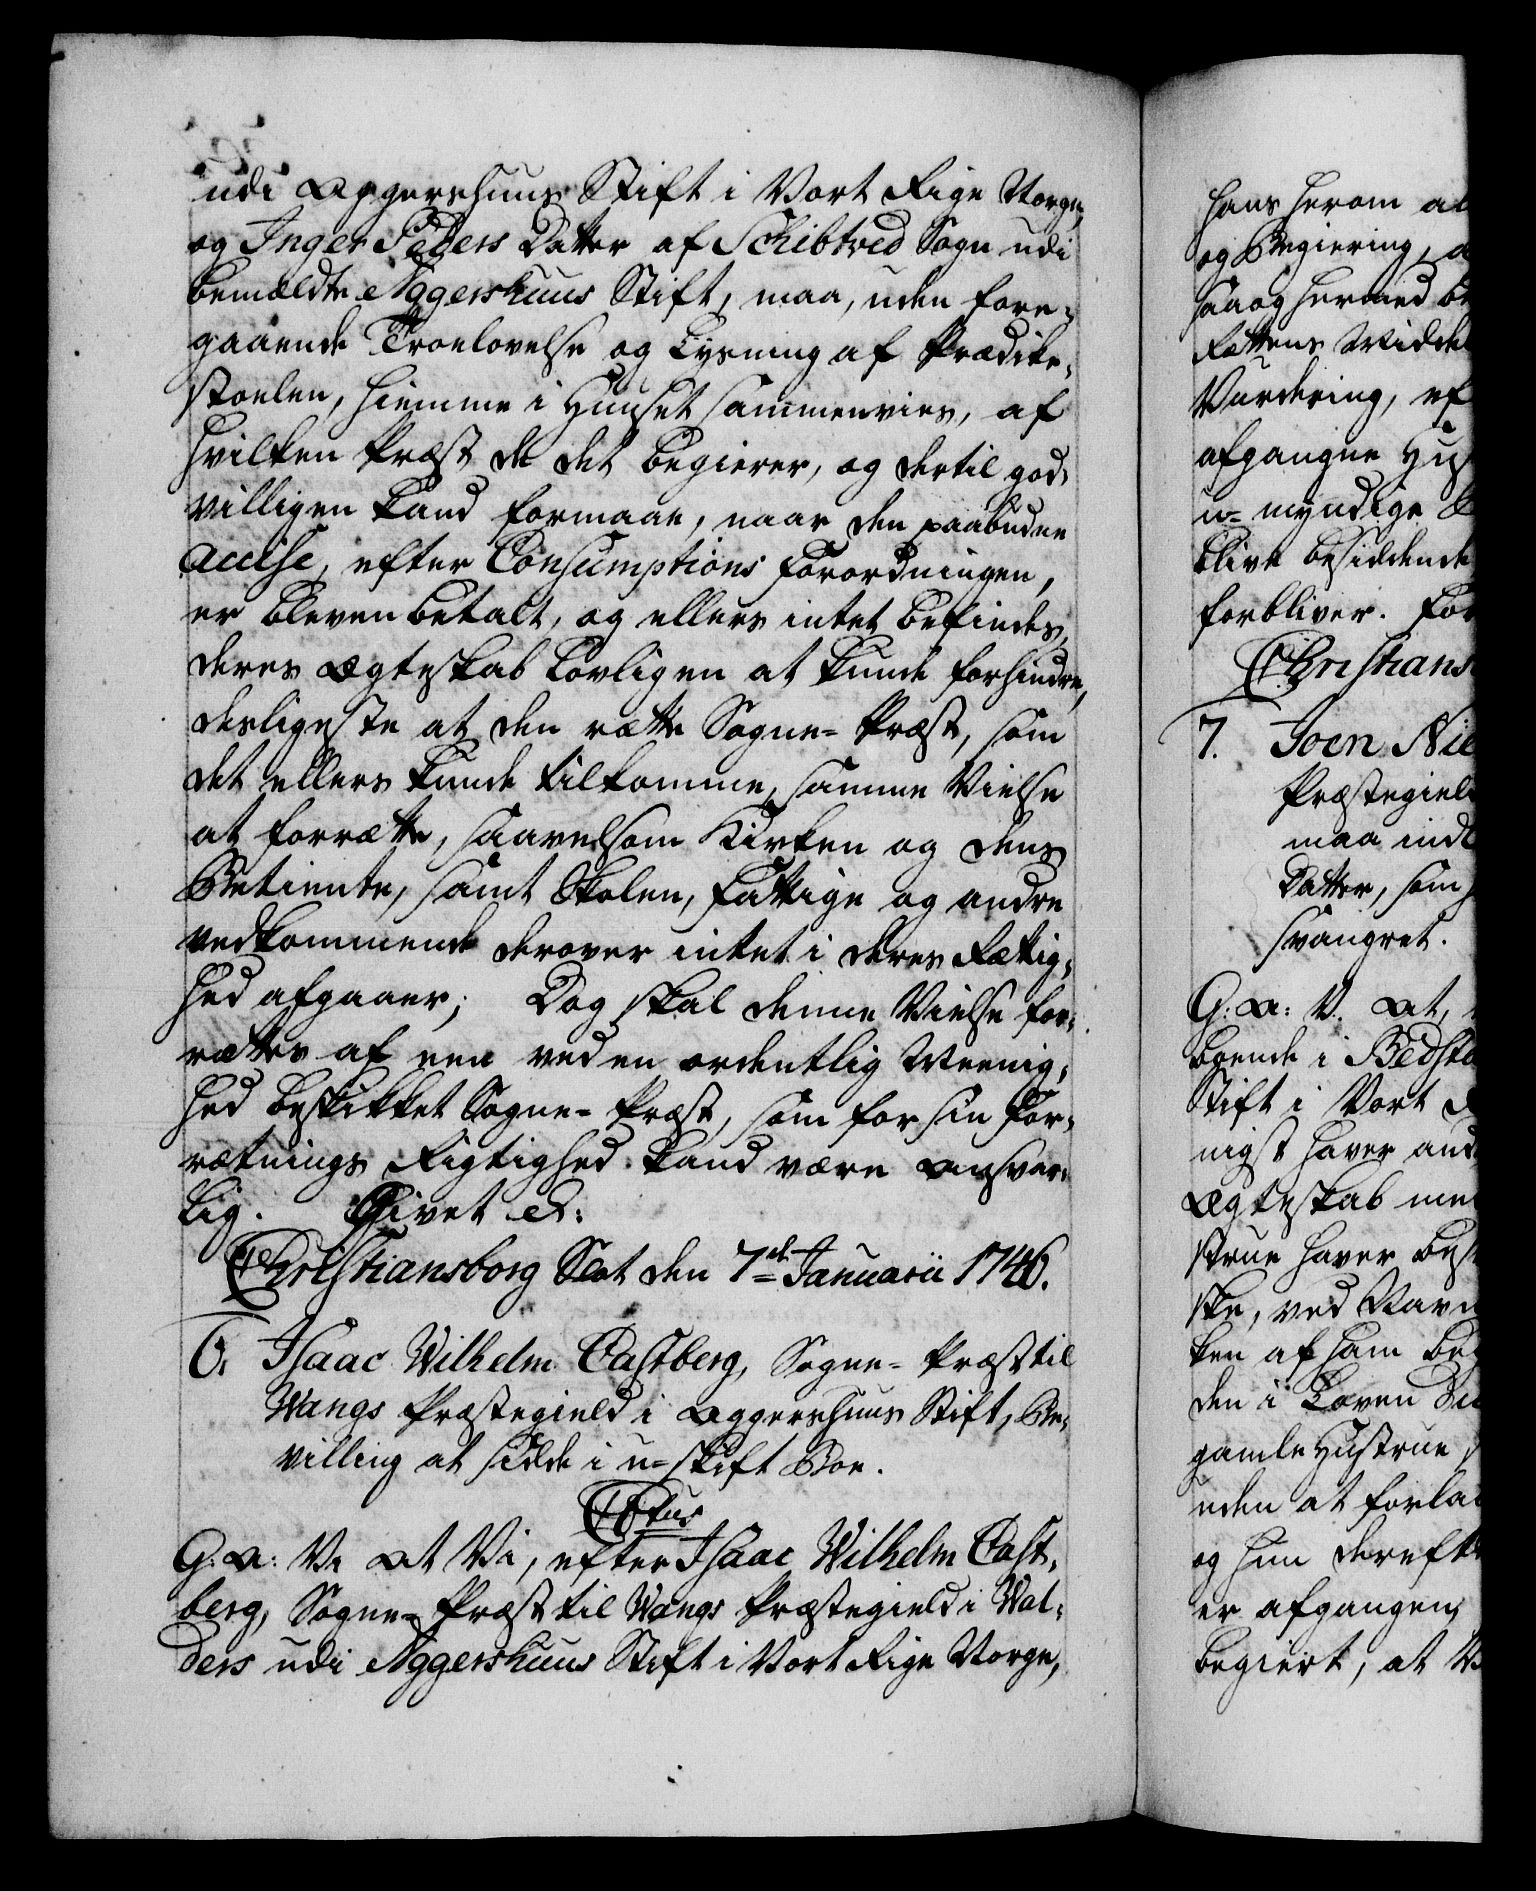 udi Aggershuus Stift i Vort Rige Norge,
og Inger Peders Datter af Schibtved Sogn udi
bemældte Aggershuus Stift, maa, uden fore-
gaaende Troelovelse og Lysning af Prædike-
stoelen, hiemme i Huuset sammenvies, af
hvilken Præst de det begierer, og dertil god-
villigen kand formaae, naar den paabudne
accise, efter Consumptions Forordningen,
er bleven betalt, og ellers intet befindes,
deres Ægteskab lovligen at kunde forhindre,
desligeste at den rætte Sogne-Præst, som
det ellers kunde tilkomme, samme Vielse
at forrætte, saavelsom Kirken og dens
Betiente, samt Skolen, Fattige og andre
vedkommende derover intet i deres Rættig-
hed afgaaer; Dog skal denne Vielse for-
rættes af een ved en ordentlig Meenig-
hed beskikket Sogne-Præst, som for sin For-
rætnings Rigtighed kand være ansvar-
lig. Givet &:
Christiansborg Slot den 7de Januarii 1746.
6. Isaac Wilhelm Castberg, Sogne-Præst til
Wangs Præstegield i Aggershuus Stift, Be-
villing at sidde i u-skift Boe.
C6tus
G: A: V. At Vi, efter Isaac Wilhelm Cast-
berg, Sogne-Præst til Wangs Præstegield i Wal-
ders udi Aggershuus Stift i Vort Rige Norge,
hans herom al
og Begiering, a
saa og hermed be
Rettens Middel
Vurdering, ef
afgangne Hus
u-myndige B
blive besiddende
forbliver. For
Christians
7. Joen Nie
Præstegield
maa ind
Datter, som
svangret.
G: A: V. At,
boende i Bedsta
Stift i Vort R
nigst haver and
Ægteskab med
strue haver be
ske, ved Navn
ken af ham beg
den i Loven
gamle Hustrue
uden at forla
og hun derefte
er afgangen,
begiert, at V